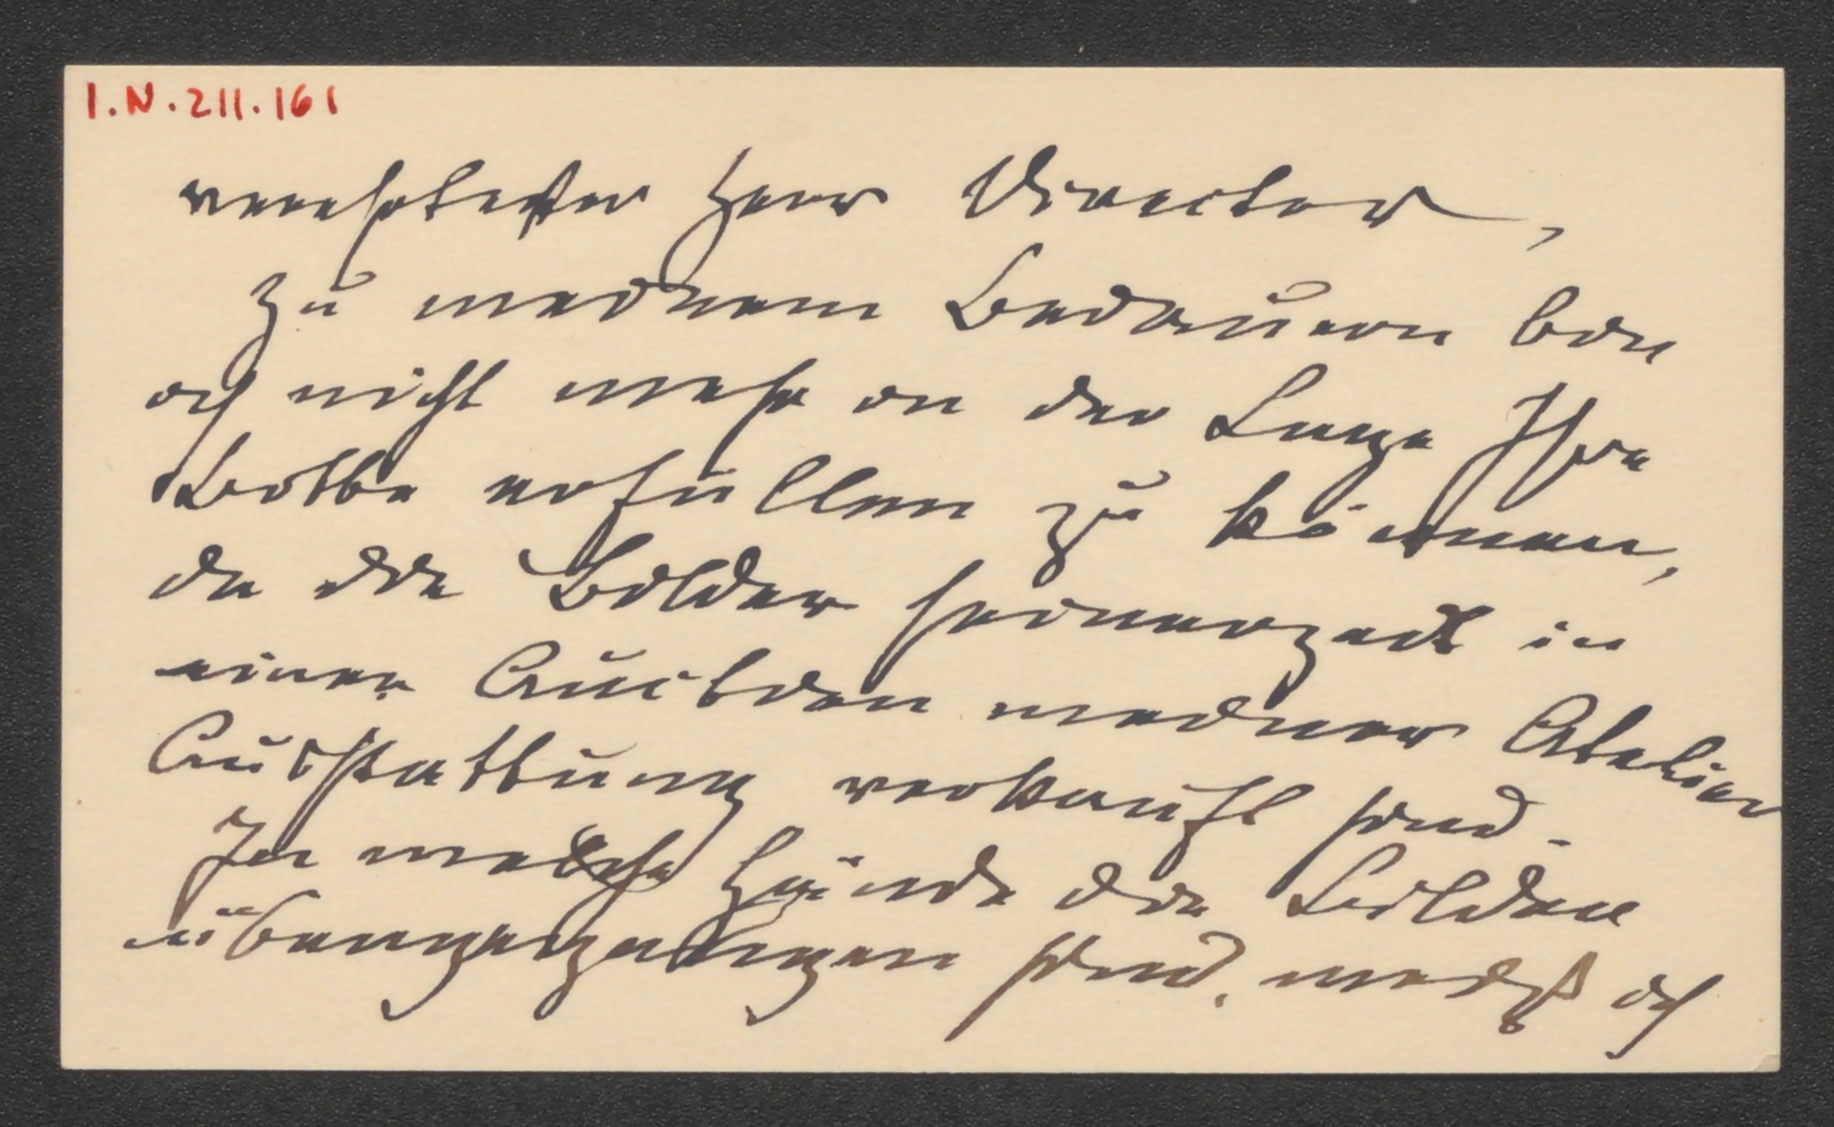 I.N.211.161
verehrtester Herr Director,
Zu meinem Bedauern bin
ich nicht mehr in der Lage Ihre
Bitte erfüllen zu können,
da die Bilder seinerzeit in
einer Auction meiner Atelier
Ausstattung verkauft sind.
In welche Hände die Bilder
übergegangen sind, weiß ich